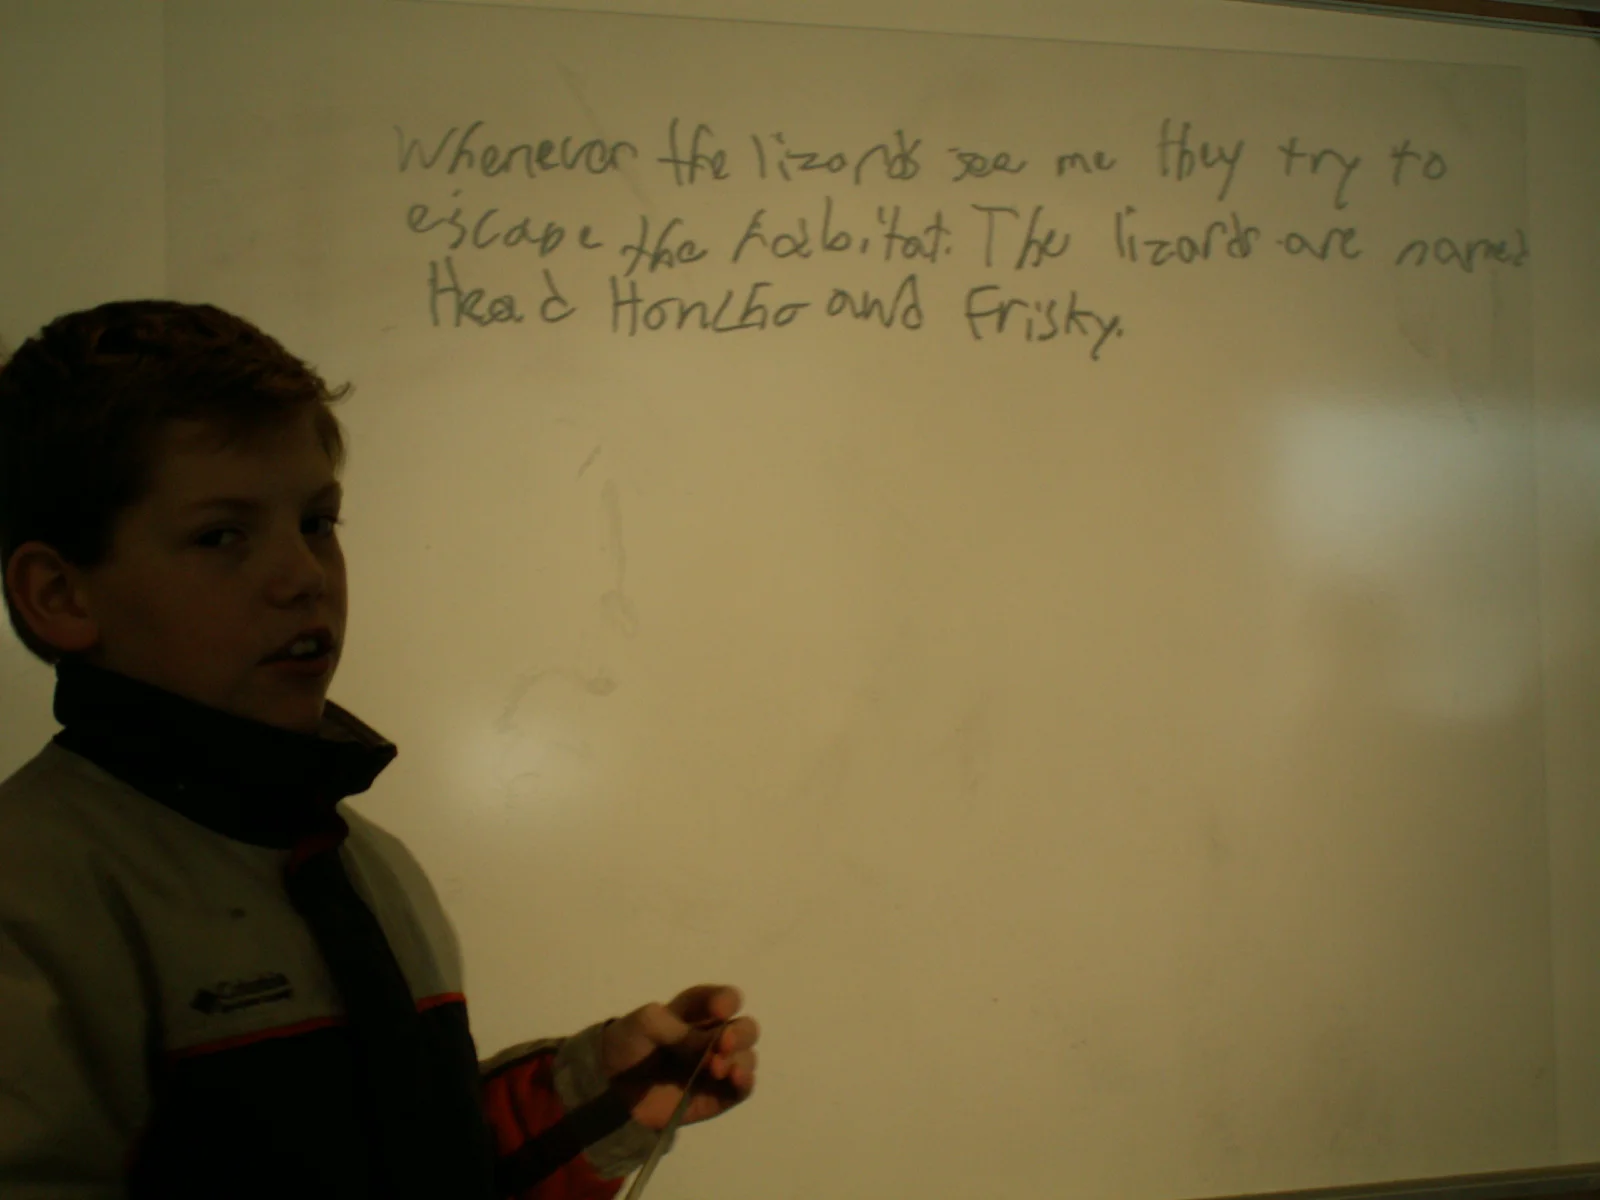 Whenever the lizards see me they try to
escape the habitat. The lizards are named
Head Honcho and Frisky.
Columbia